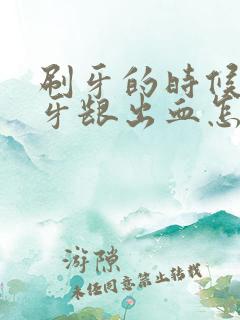 刷牙的时候
牙龈出血怎
游隙
未经同意禁止转载